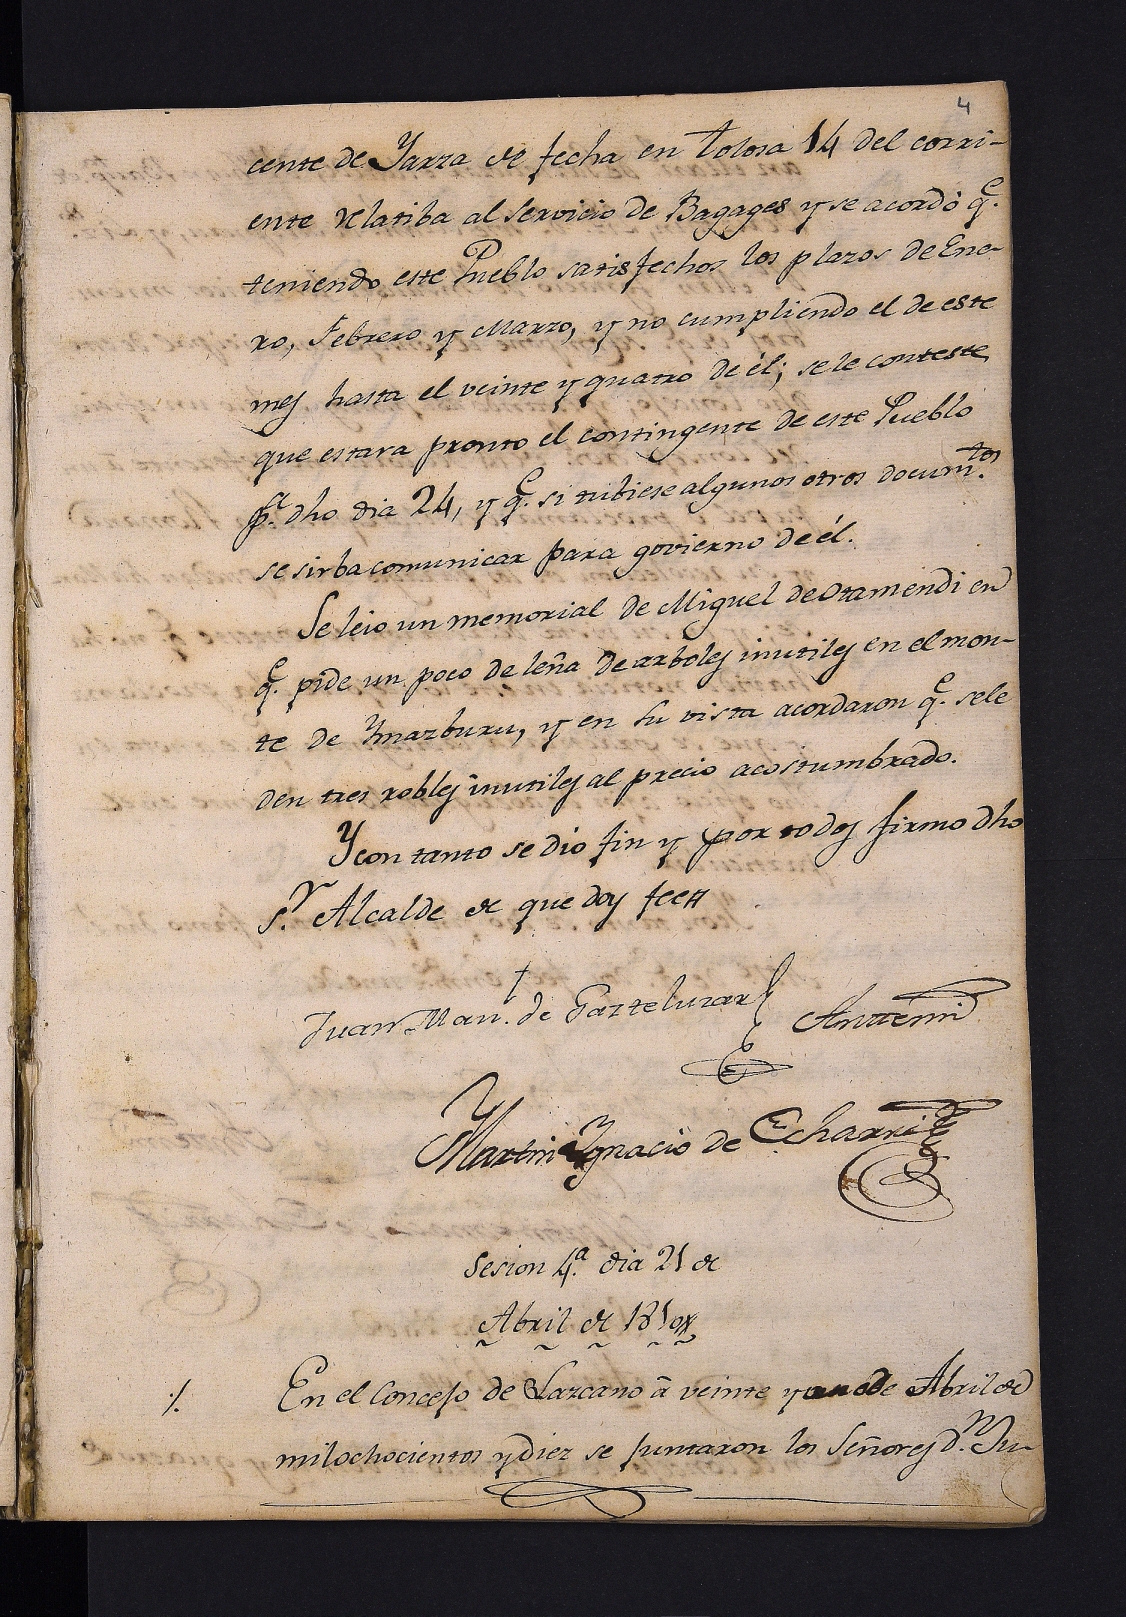 4
cente de Yarza de fecha en Tolosa 14 del corri-
ente relatiba al servicio de Bagages y se acordó q.e
teniendo este Pueblo satisfechos los plazos de Ene-
ro, Febrero y Marzo, y no cumpliendo el de este
mes hasta el veinte y quatro de él; se le conteste
que estara pronto el contingente de este Pueblo
p.a dho dia 24, y q.e si tubiese algunos otros docum.tos
se sirba comunicar para govierno de él.
Se leio un memorial de Miguel de Otamendi en
q.e pide un poco de leña de arboles inutiles en el mon-
te de Ymazburu, y en su vista acordaron q.e se le
den tres robles inutiles al precio acostumbrado.
Y con tanto se dió fin y por todos firmo dho
S.r Alcalde de que doy fee
Juan Man.l de Gazteluzar Antemi
Martin Ygnacio de Echarri
Sesion 4.a dia 21 de
Abril de 1810
En el Concejo de Lazcano à veinte y uno de Abril de
mil ochocientos y diez se juntaron los Señores d.n Ju-